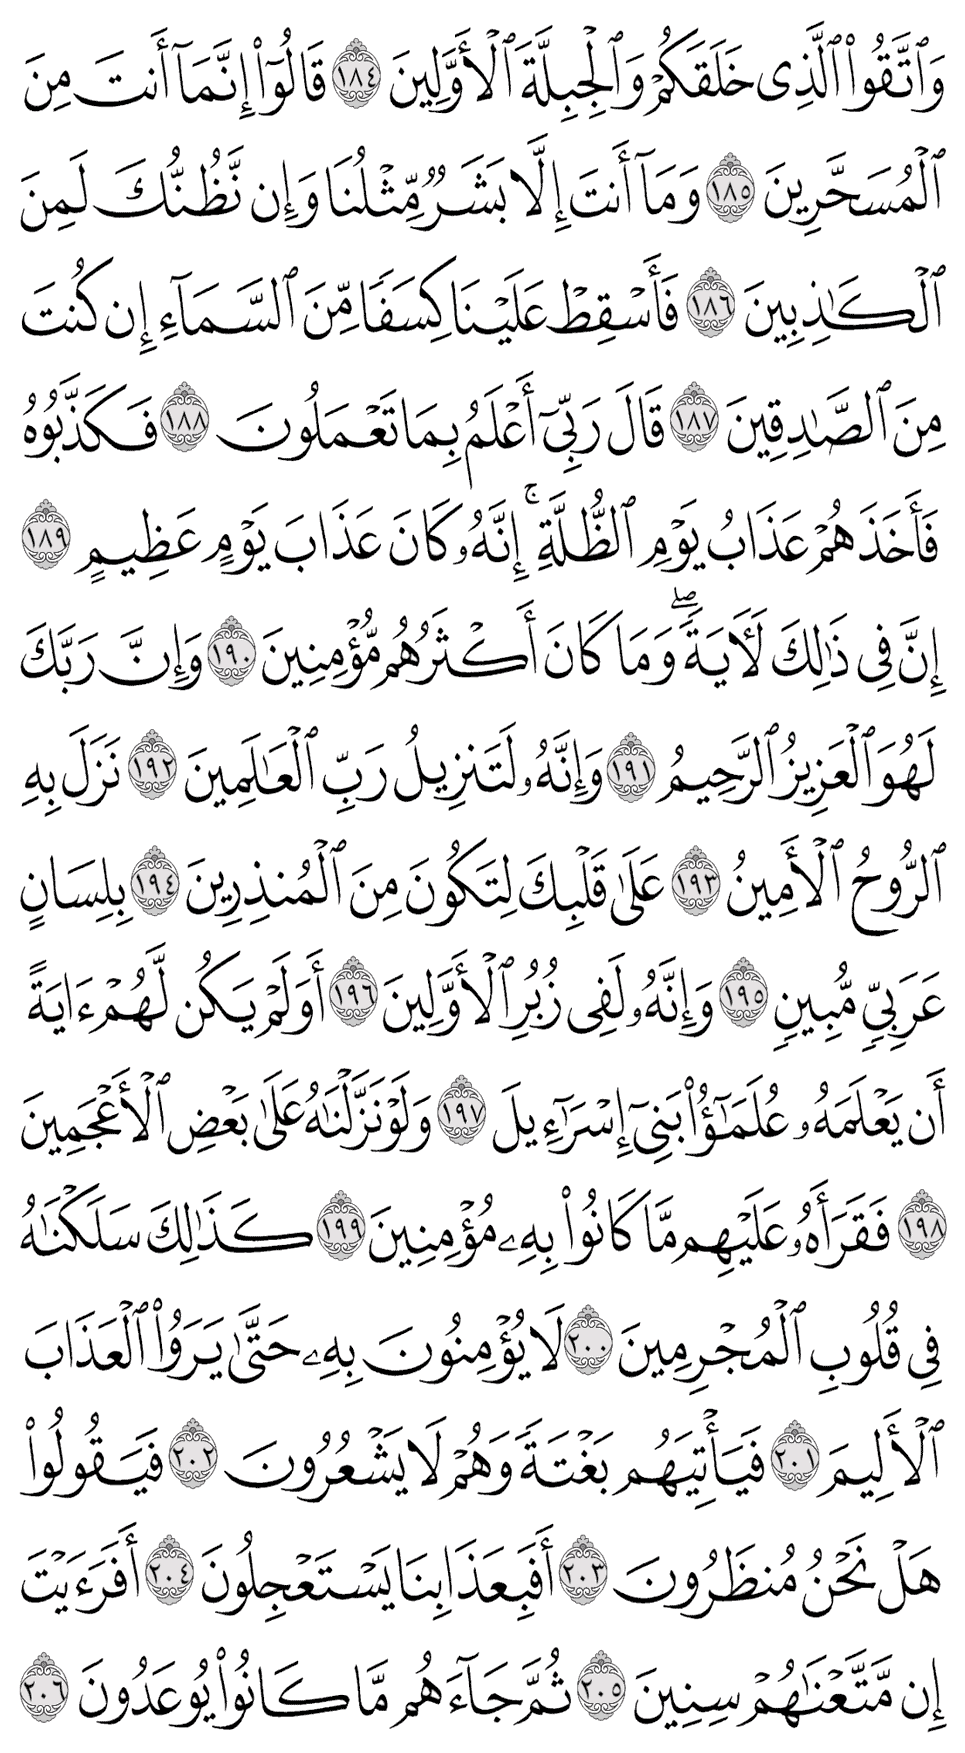 وَٱتَّقُوا۟ ٱلَّذِى خَلَقَكُمْ وَٱلْجِبِلَّةَ ٱلْأَوَّلِينَ ١٨٤ قَالُوٓا۟ إِنَّمَآ أَنتَ مِنَ
ٱلْمُسَحَّرِينَ ١٨٥ وَمَآ أَنتَ إِلَّا بَشَرٌ مِّثْلُنَا وَإِن نَّظُنُّكَ لَمِنَ
ٱلْكَـٰذِبِينَ ١٨٦ فَأَسْقِطْ عَلَيْنَا كِسَفًا مِّنَ ٱلسَّمَآءِ إِن كُنتَ
مِنَ ٱلصَّـٰدِقِينَ ١٨٧ قَالَ رَبِّىٓ أَعْلَمُ بِمَا تَعْمَلُونَ ١٨٨ فَكَذَّبُوهُ
فَأَخَذَهُمْ عَذَابُ يَوْمِ ٱلظُّلَّةِ ۚ إِنَّهُۥ كَانَ عَذَابَ يَوْمٍ عَظِيمٍ ١٨٩
إِنَّ فِى ذَٰلِكَ لَـَٔايَةً ۖ وَمَا كَانَ أَكْثَرُهُم مُّؤْمِنِينَ ١٩٠ وَإِنَّ رَبَّكَ
لَهُوَ ٱلْعَزِيزُ ٱلرَّحِيمُ ١٩١ وَإِنَّهُۥ لَتَنزِيلُ رَبِّ ٱلْعَـٰلَمِينَ ١٩٢ نَزَلَ بِهِ
ٱلرُّوحُ ٱلْأَمِينُ ١٩٣ عَلَىٰ قَلْبِكَ لِتَكُونَ مِنَ ٱلْمُنذِرِينَ ١٩٤ بِلِسَانٍ
عَرَبِىٍّ مُّبِينٍ ١٩٥ وَإِنَّهُۥ لَفِى زُبُرِ ٱلْأَوَّلِينَ ١٩٦ أَوَلَمْ يَكُن لَّهُمْ ءَايَةً
أَن يَعْلَمَهُۥ عُلَمَـٰٓؤُا۟ بَنِىٓ إِسْرَٰٓءِيلَ ١٩٧ وَلَوْ نَزَّلْنَـٰهُ عَلَىٰ بَعْضِ ٱلْأَعْجَمِينَ
١٩٨ فَقَرَأَهُۥ عَلَيْهِم مَّا كَانُوا۟ بِهِۦ مُؤْمِنِينَ ١٩٩ كَذَٰلِكَ سَلَكْنَـٰهُ
فِى قُلُوبِ ٱلْمُجْرِمِينَ ٢٠٠ لَا يُؤْمِنُونَ بِهِۦ حَتَّىٰ يَرَوُا۟ ٱلْعَذَابَ
ٱلْأَلِيمَ ٢٠١ فَيَأْتِيَهُم بَغْتَةً وَهُمْ لَا يَشْعُرُونَ ٢٠٢ فَيَقُولُوا۟
هَلْ نَحْنُ مُنظَرُونَ ٢٠٣ أَفَبِعَذَابِنَا يَسْتَعْجِلُونَ ٢٠٤ أَفَرَءَيْتَ
إِن مَّتَّعْنَـٰهُمْ سِنِينَ ٢٠٥ ثُمَّ جَآءَهُم مَّا كَانُوا۟ يُوعَدُونَ ٢٠٦